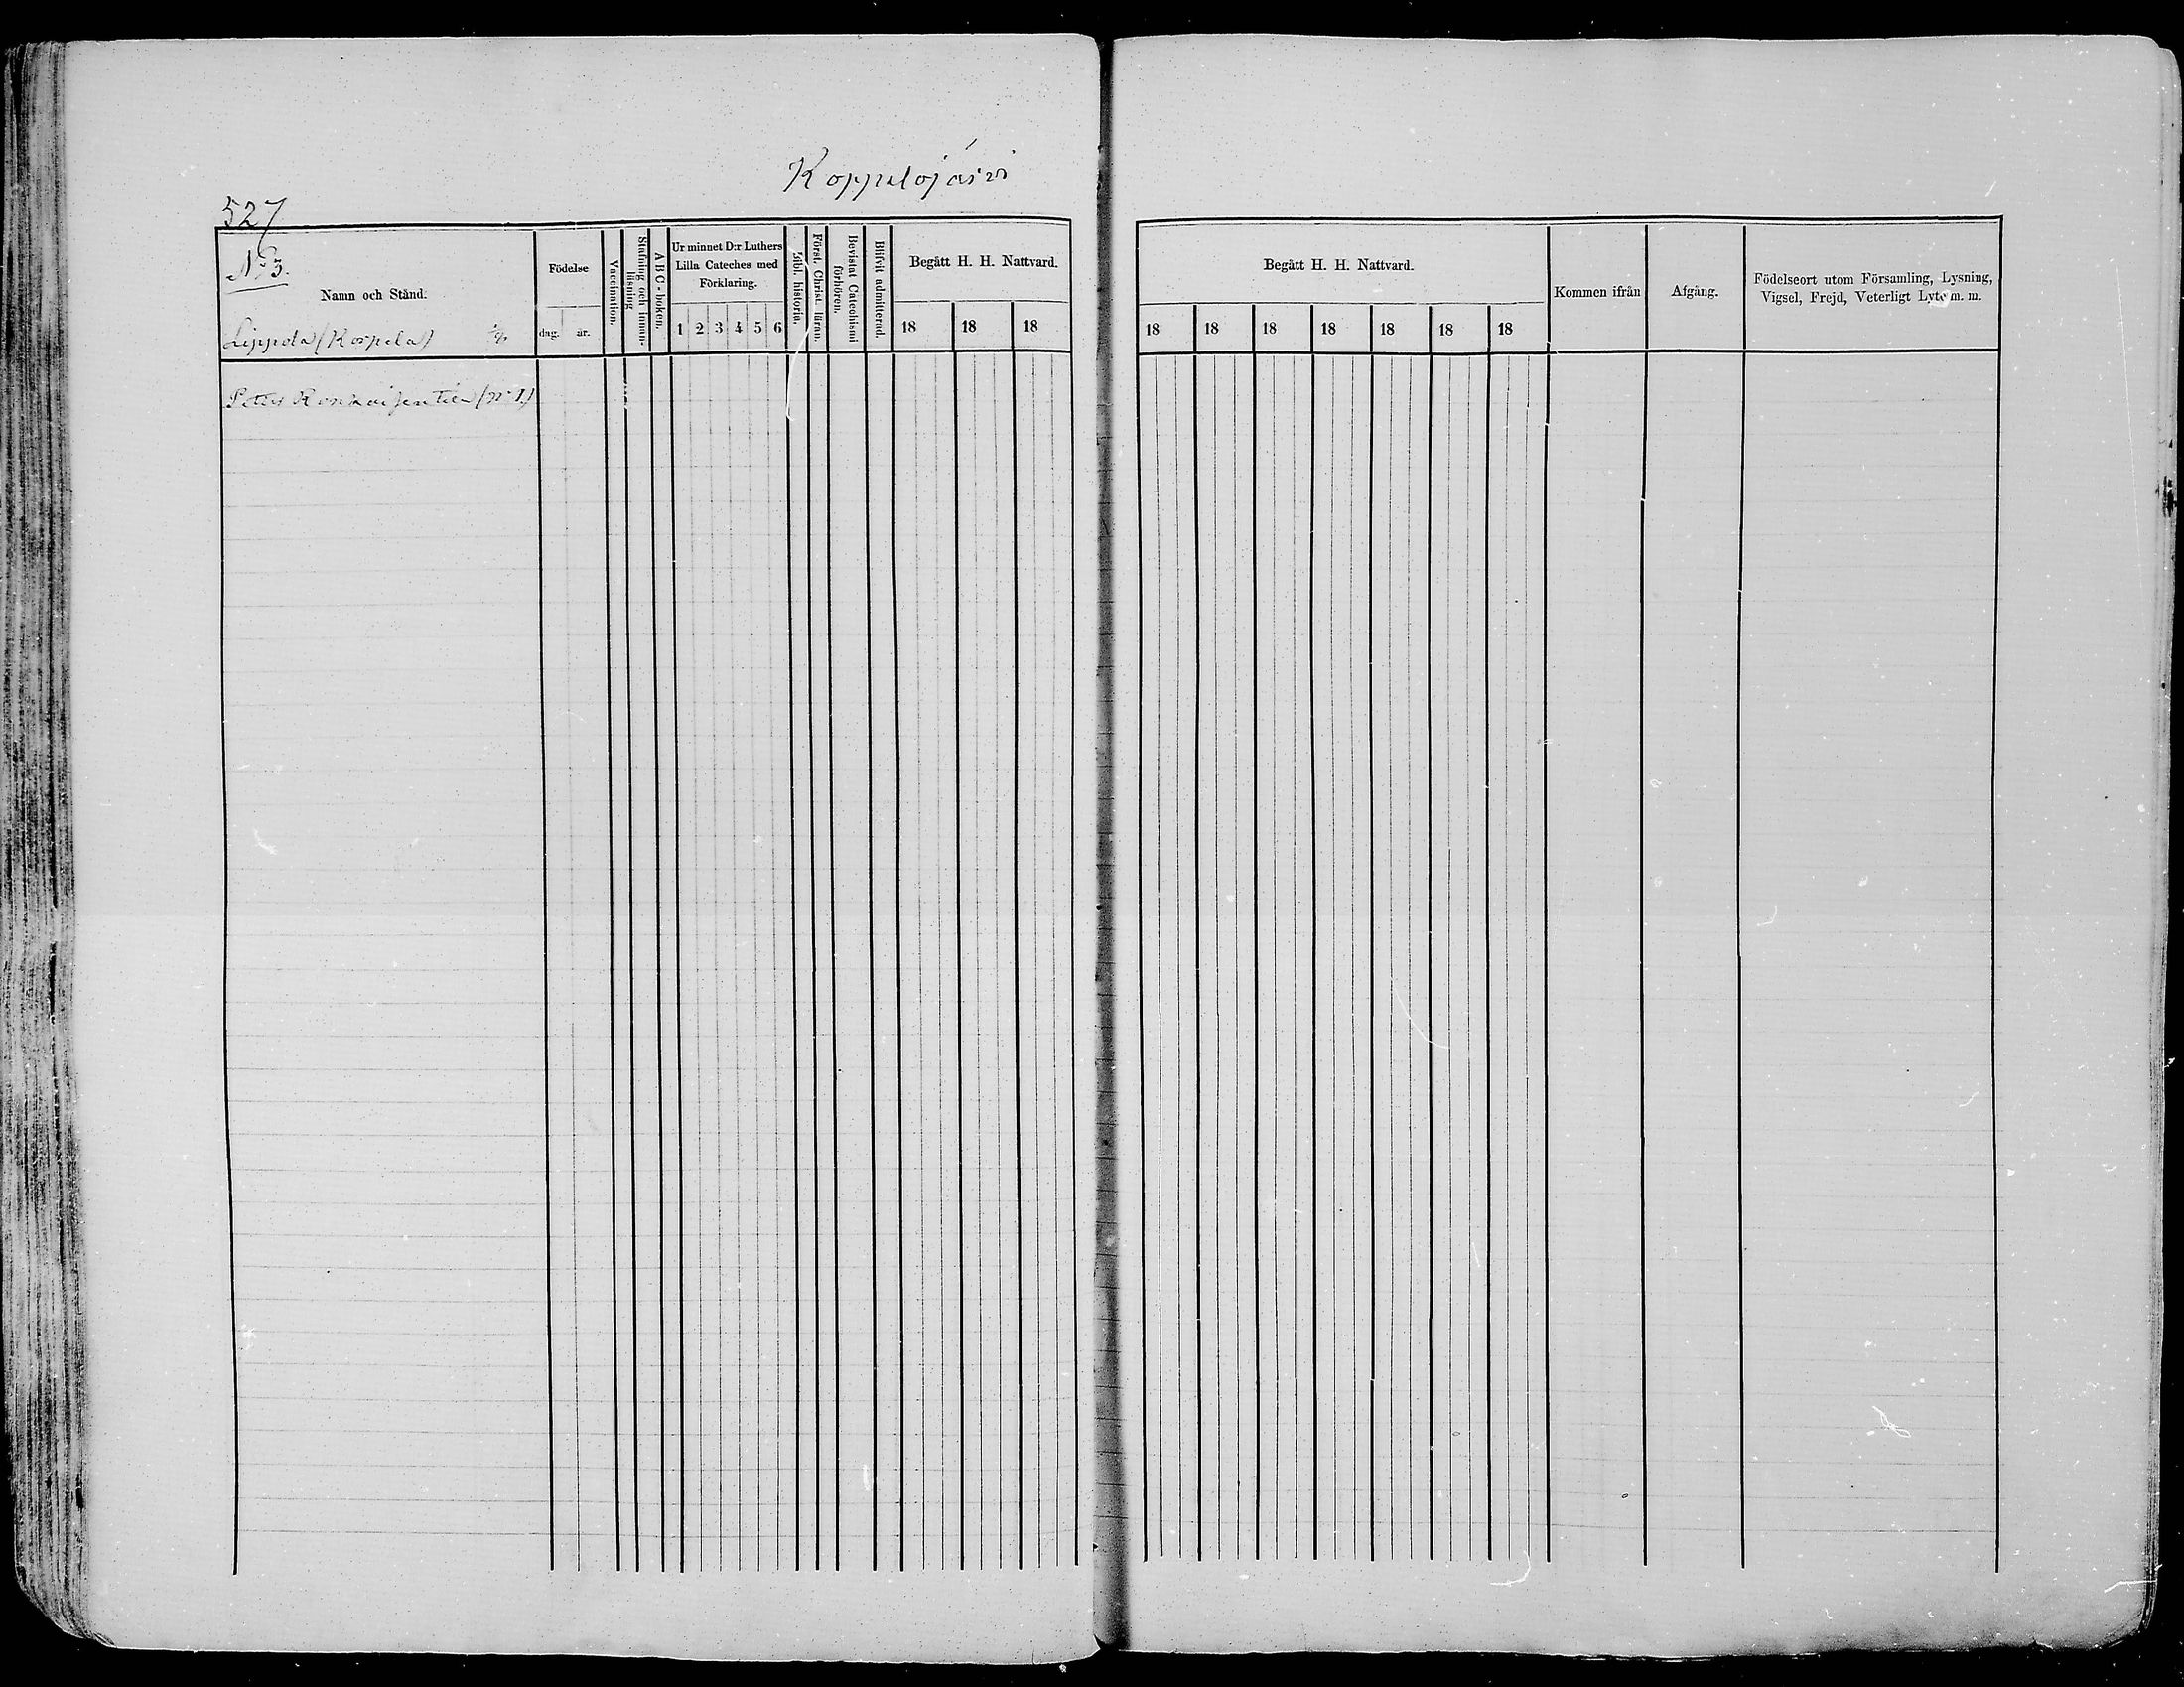 Koppelojärvi
527
No 3.
Namn och Stånd.
Leppola (Korpela)
Födelse
dag. år.
Vaccination.
Stafning och Innan-läsning
A B C-boken.
Ur minnet D:r Luthers
Lilla Cateches med
Förklaring.
1 2 3 4 5 6
Bibl. historia.
Först. Christ. läran.
Bevistat Catechismi förhören.
Blifvit admitterad.
Begått H. H. Nattvard.
18 18 18
Petter
Begått H. H. Nattvard.
18 18 18 18 18 18 18
Kommen ifrån
Afgång.
Födelseort utom Församling, Lysning,
Vigsel, Frejd, Veterligt Lyte m. m.